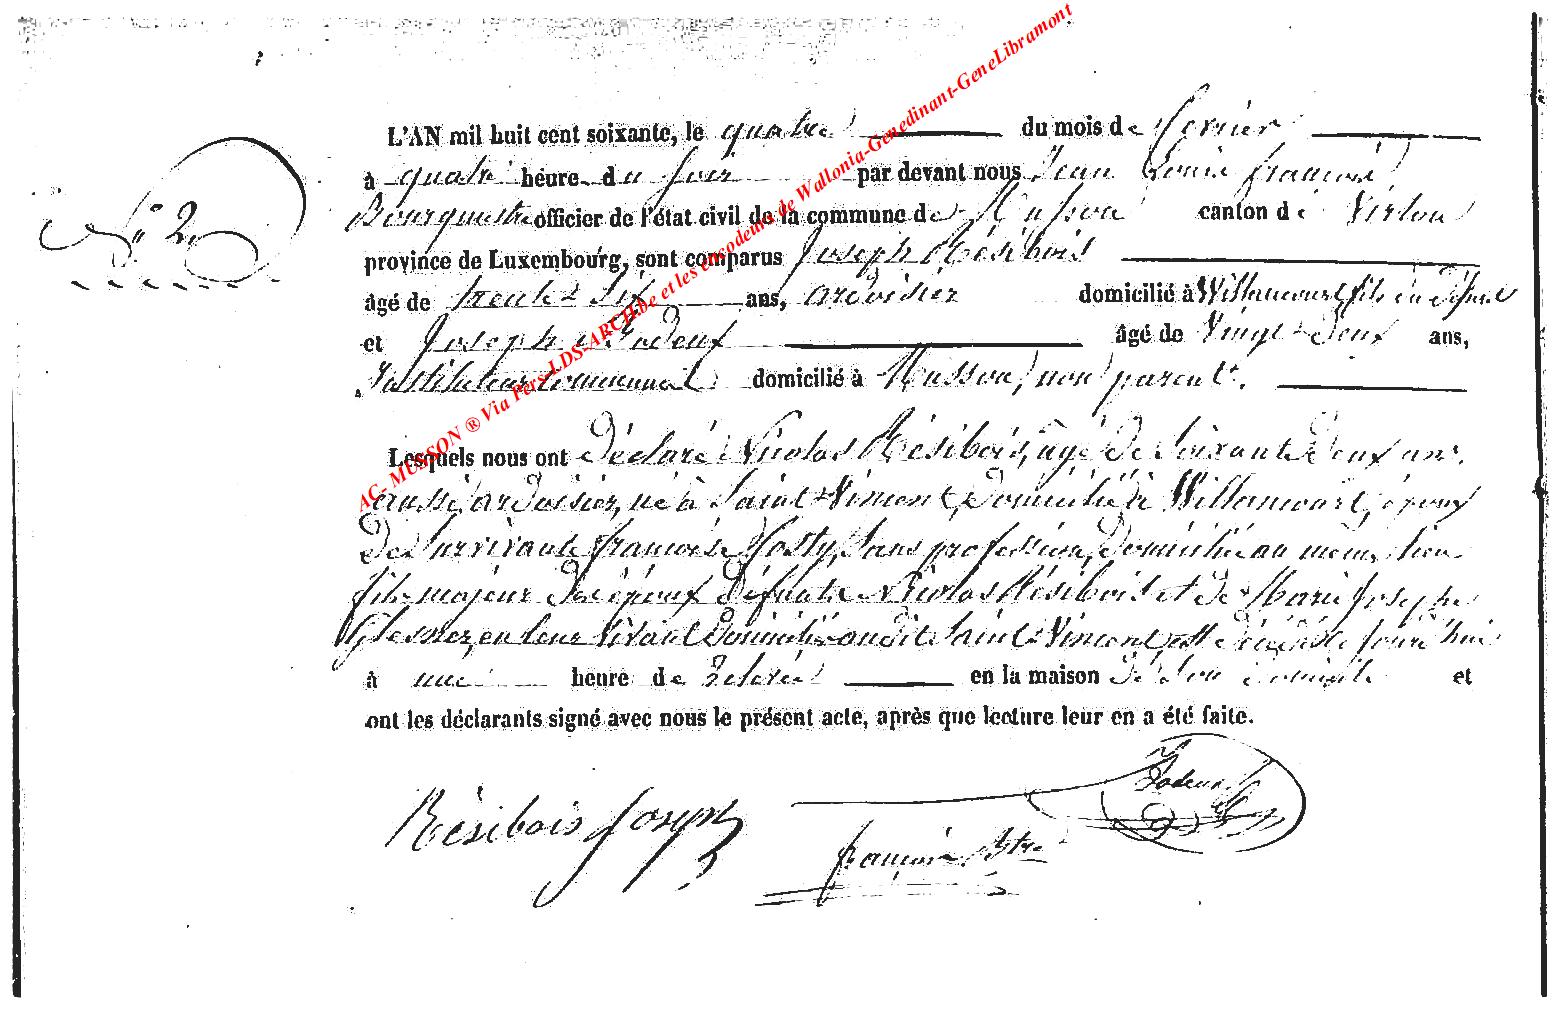 L'AN mil huit cent soixante, le quatre du mois de fevrier
à quatre heure du soir par devant nous Jean Louis françois
N° 2
Bourguestre officier de l'état civil de la commune de Musson canton de Virton
province de Luxembourg, sont comparus Joseph Résibois
âgé de trente Six ans, ardoisier domicilié à Willancourt, fils du Défunt
et Joseph Jodeux âgé de Vingt Deux ans,
Instituteur communal domicilié à Musson, non parent.
Lesquels nous ont Déclaré Nicolas Résibois, agé De Soixante Deux ans.
aussi ardoisier, né à Saint Vincent, Domicilié à Willancourt, époux
De Survivante françoise Hosty, Sans profession, Domiciliée au meme lieu
fils majeur Des époux Défunts Nicolas Résibois et De Marie Joseph
en leur Vivant Domiciliés audit Saint Vincent, est Décédé ce jourd'hui
à une heure de relevée en la maison De Son Domicile et
ont les déclarants signé avec nous le présent acte, après que lecture leur en a été faite.
Jodeux
Résibois Joseph
françois Btre
AC- MUSSON ® Via Pers-LDS-ARCH.be et les encodeurs de Wallonia-Genedinant-GeneLibramont